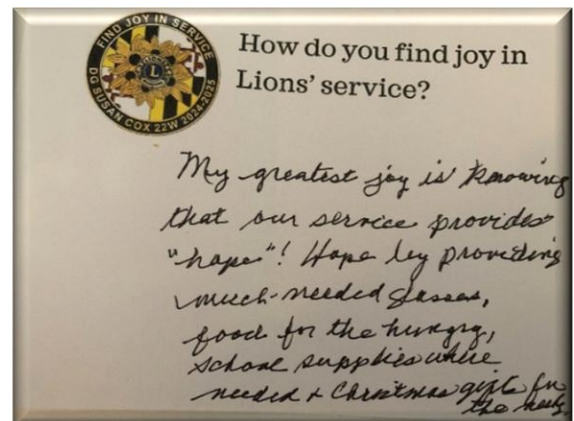 FIND JOY IN SERVICE
DG SUSAN COX 22W 2024-2025
L
How do you find joy in
Lions' service?
My greatest joy is knowing
that our service provides
"hope"! Hope by providing
much-needed glasses,
food for the hungry,
school supplies where
needed & Christmas gifts for
the needy.